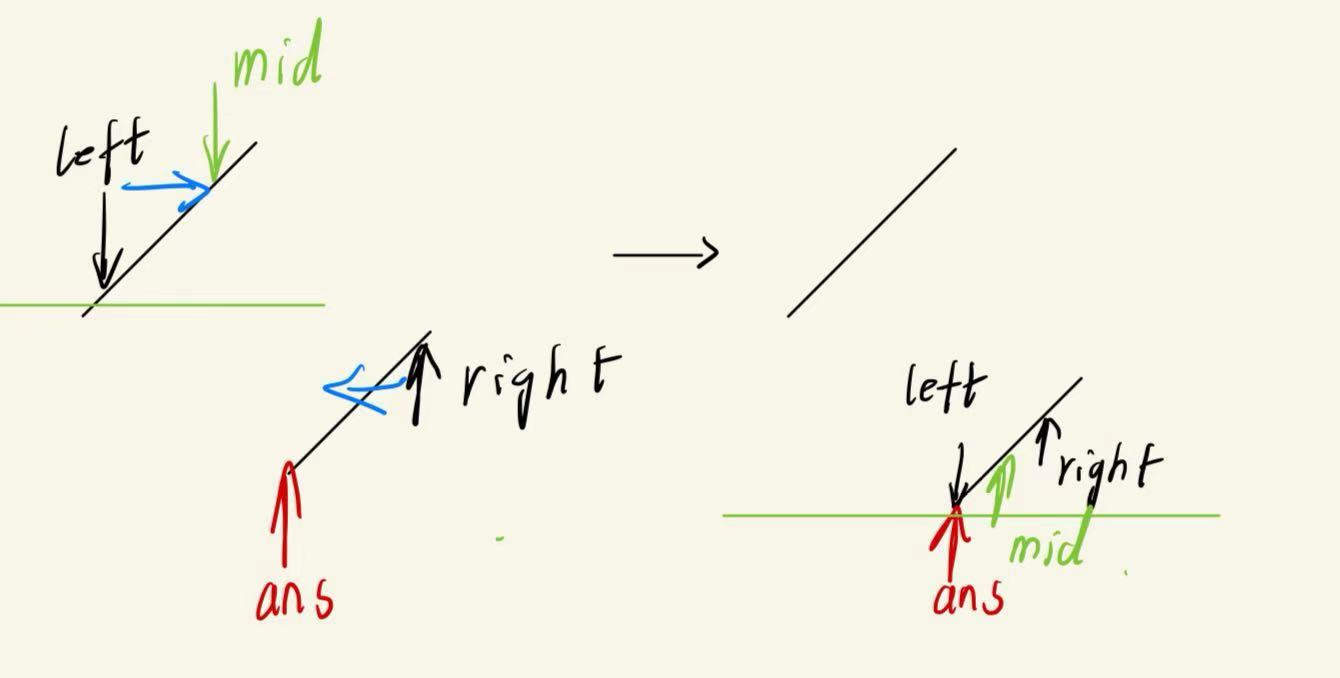 mid
left
right
ans
left
right
mid
ans